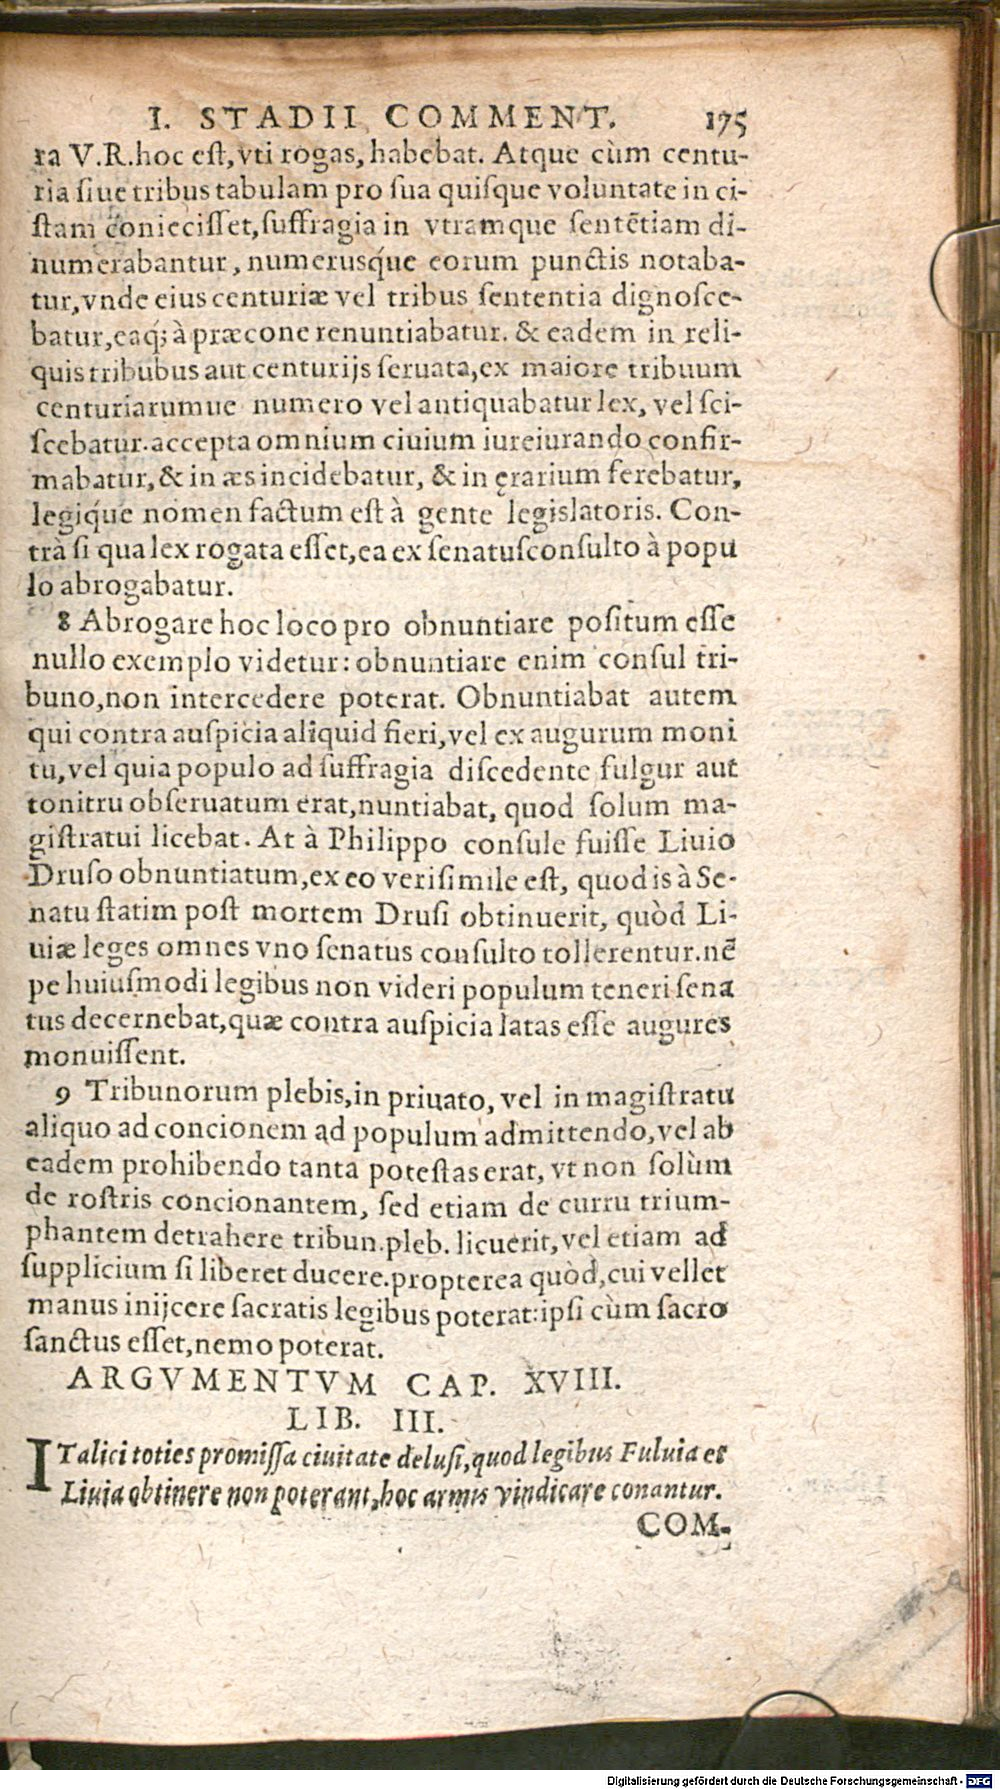 I. STADII COMMENT. 175
ra V.R. hoc est, vti rogas, habebat. Atque cùm centu-
ria siue tribus tabulam pro sua quisque voluntate in ci-
stam coniecisset, suffragia in vtramque sentẽtiam di-
numerabantur, numerusq́ue eorum punctis notaba-
tur, vnde eius centuriæ vel tribus sententia dignosce-
batur, eaq; à præcone renuntiabatur. & eadem in reli-
quis tribubus aut centurijs seruata, ex maiore tribuum
centuriarumue numero vel antiquabatur lex, vel sci-
scebatur. accepta omnium ciuium iureiurando confir-
mabatur, & in æs incidebatur, & in ęrarium ferebatur,
legiq́ue nomen factum est à gente legislatoris. Con-
trà si qua lex rogata esset, ea ex senatusconsulto à popu
lo abrogabatur.
8 Abrogare hoc loco pro obnuntiare positum esse
nullo exemplo videtur: obnuntiare enim consul tri-
buno, non intercedere poterat. Obnuntiabat autem
qui contra auspicia aliquid fieri, vel ex augurum moni
tu, vel quia populo ad suffragia discedente fulgur aut
tonitru obseruatum erat, nuntiabat, quod solum ma-
gistratui licebat. At à Philippo consule fuisse Liuio
Druso obnuntiatum, ex eo verisimile est, quod is à Se-
natu statim post mortem Drusi obtinuerit, quòd Li-
uiæ leges omnes vno senatus consulto tollerentur. nẽ
pe huiusmodi legibus non videri populum teneri sena
tus decernebat, quæ contra auspicia latas esse augures
monuissent.
9 Tribunorum plebis, in priuato, vel in magistratu
aliquo ad concionem ad populum admittendo, vel ab
eadem prohibendo tanta potestas erat, vt non solùm
de rostris concionantem, sed etiam de curru trium-
phantem detrahere tribun. pleb. licuerit, vel etiam ad
supplicium si liberet ducere. propterea quòd, cui vellet
manus inijcere sacratis legibus poterat: ipsi cùm sacro
sanctus esset, nemo poterat.
ARGVMENTVM CAP. XVIII.
LIB. III.
ITalici toties promissa ciuitate delusi, quod legibus Fuluia et
Liuia obtinere non poterant, hoc armis vindicare conantur.
COM-
Digitalisierung gefördert durch die Deutsche Forschungsgemeinschaft - DFG